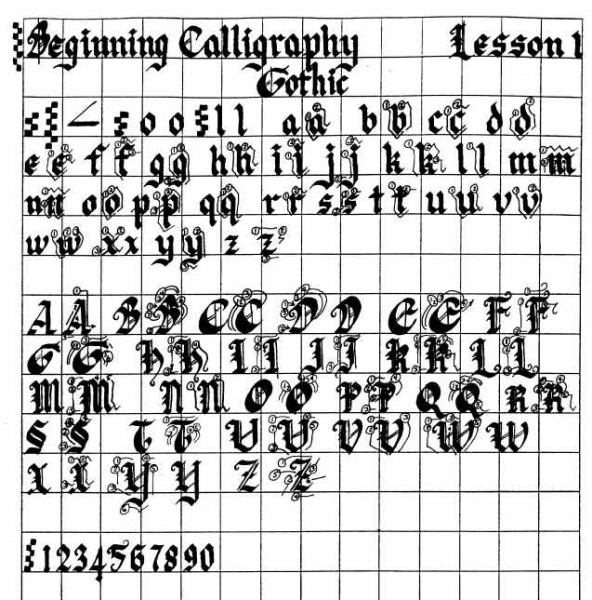 Beginning Calligraphy Lesson 1
Gothic
o o l l a a b b c c d d
e e f f g g h h i i j j k k l l m m
n n o o p p q q r r s s t t u u v v
w w x x y y z z
A A B B C C D D E E F F
G G H H I I J J K K L L
M M N N O O P P Q Q R R
S S T T U U V V W W
X X Y Y Z Z
1234567890